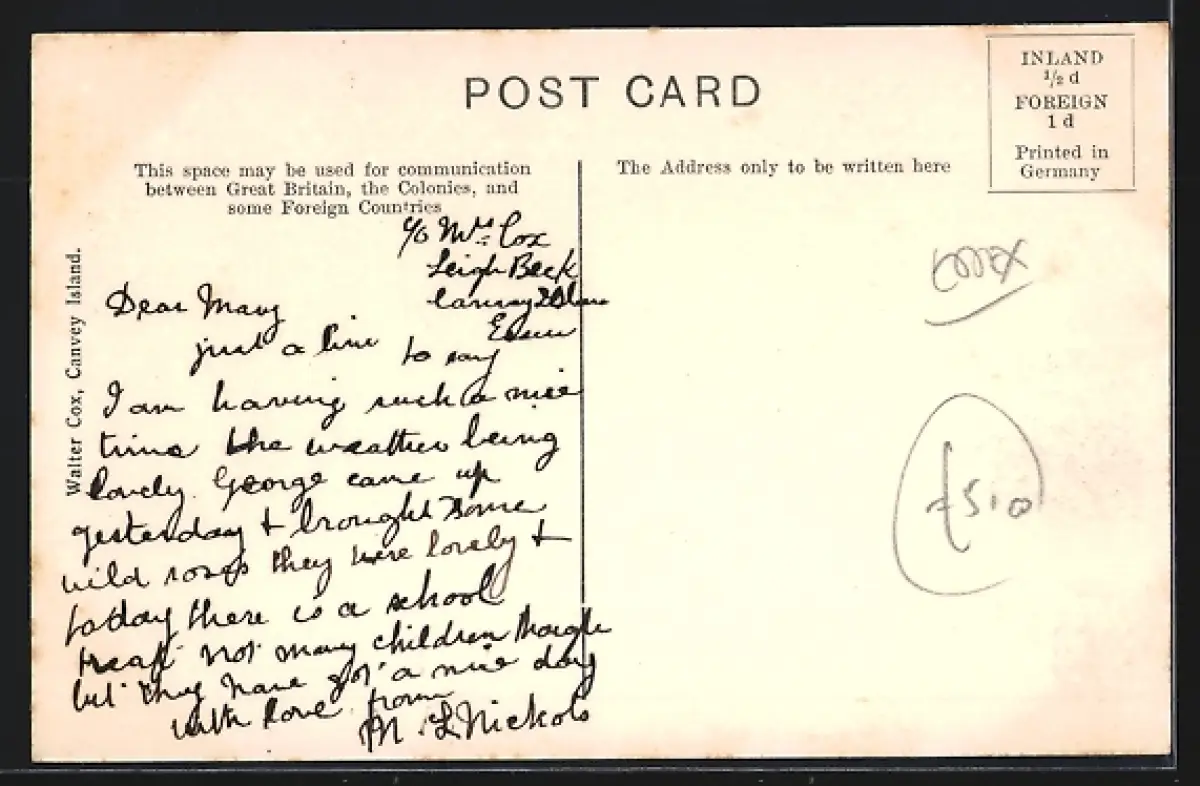 POST CARD
INLAND
1/2 d
FOREIGN
1 d
Printed in
Germany
This space may be used for communication
between Great Britain, the Colonies, and
some Foreign Countries
The Address only to be written here
Walter Cox, Canvey Island.
c/o Mrs Cox
Leigh Beck
Canvey Island
Essex
Dear Mary
just a line to say
I am having such a nice
time the weather being
lovely. George came up
yesterday + brought some
wild roses they were lovely +
today there is a school
treat not many children though
but they have got a nice day
with love from
M. L Nickols